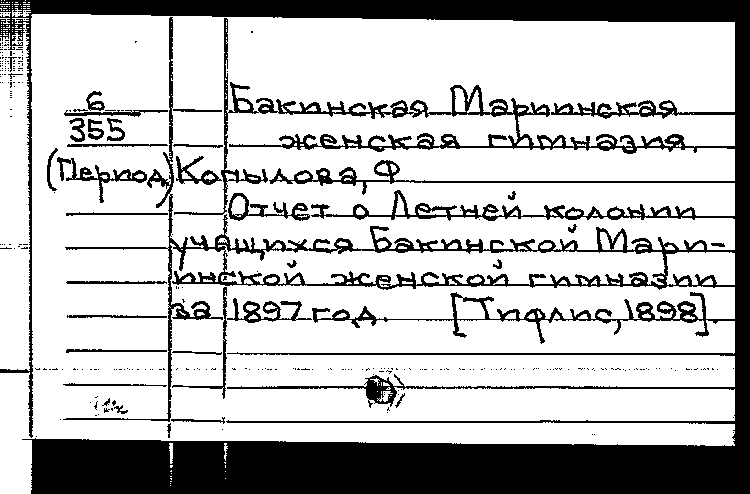 6
355
Бакинская Мариинская
женская гимназия.
(Период) Копылова, Ф
Отчет о Летней колонии
учащихся Бакинской Мари-
инской женской гимназии
за 1897 год. [Тифлис, 1898].